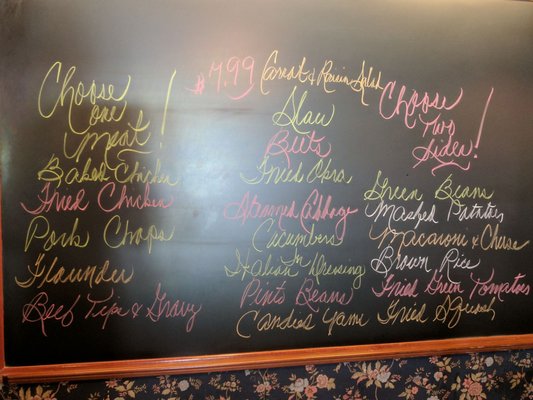 Choose
one
Meat!
Baked Chicken
Fried Chicken
Pork Chops
Flounder
Beef Tips & Gravy
$7.99
Carrot & Raisin Salad
Slaw
Beets
Fried Okra
Steamed Cabbage
Cucumbers
In
Italian Dressing
Pinto Beans
Candied Yams
Choose
Two
Sides!
Green Beans
Mashed Potatoes
Macaroni & Cheese
Brown Rice
Fried Green Tomatoes
Fried Squash